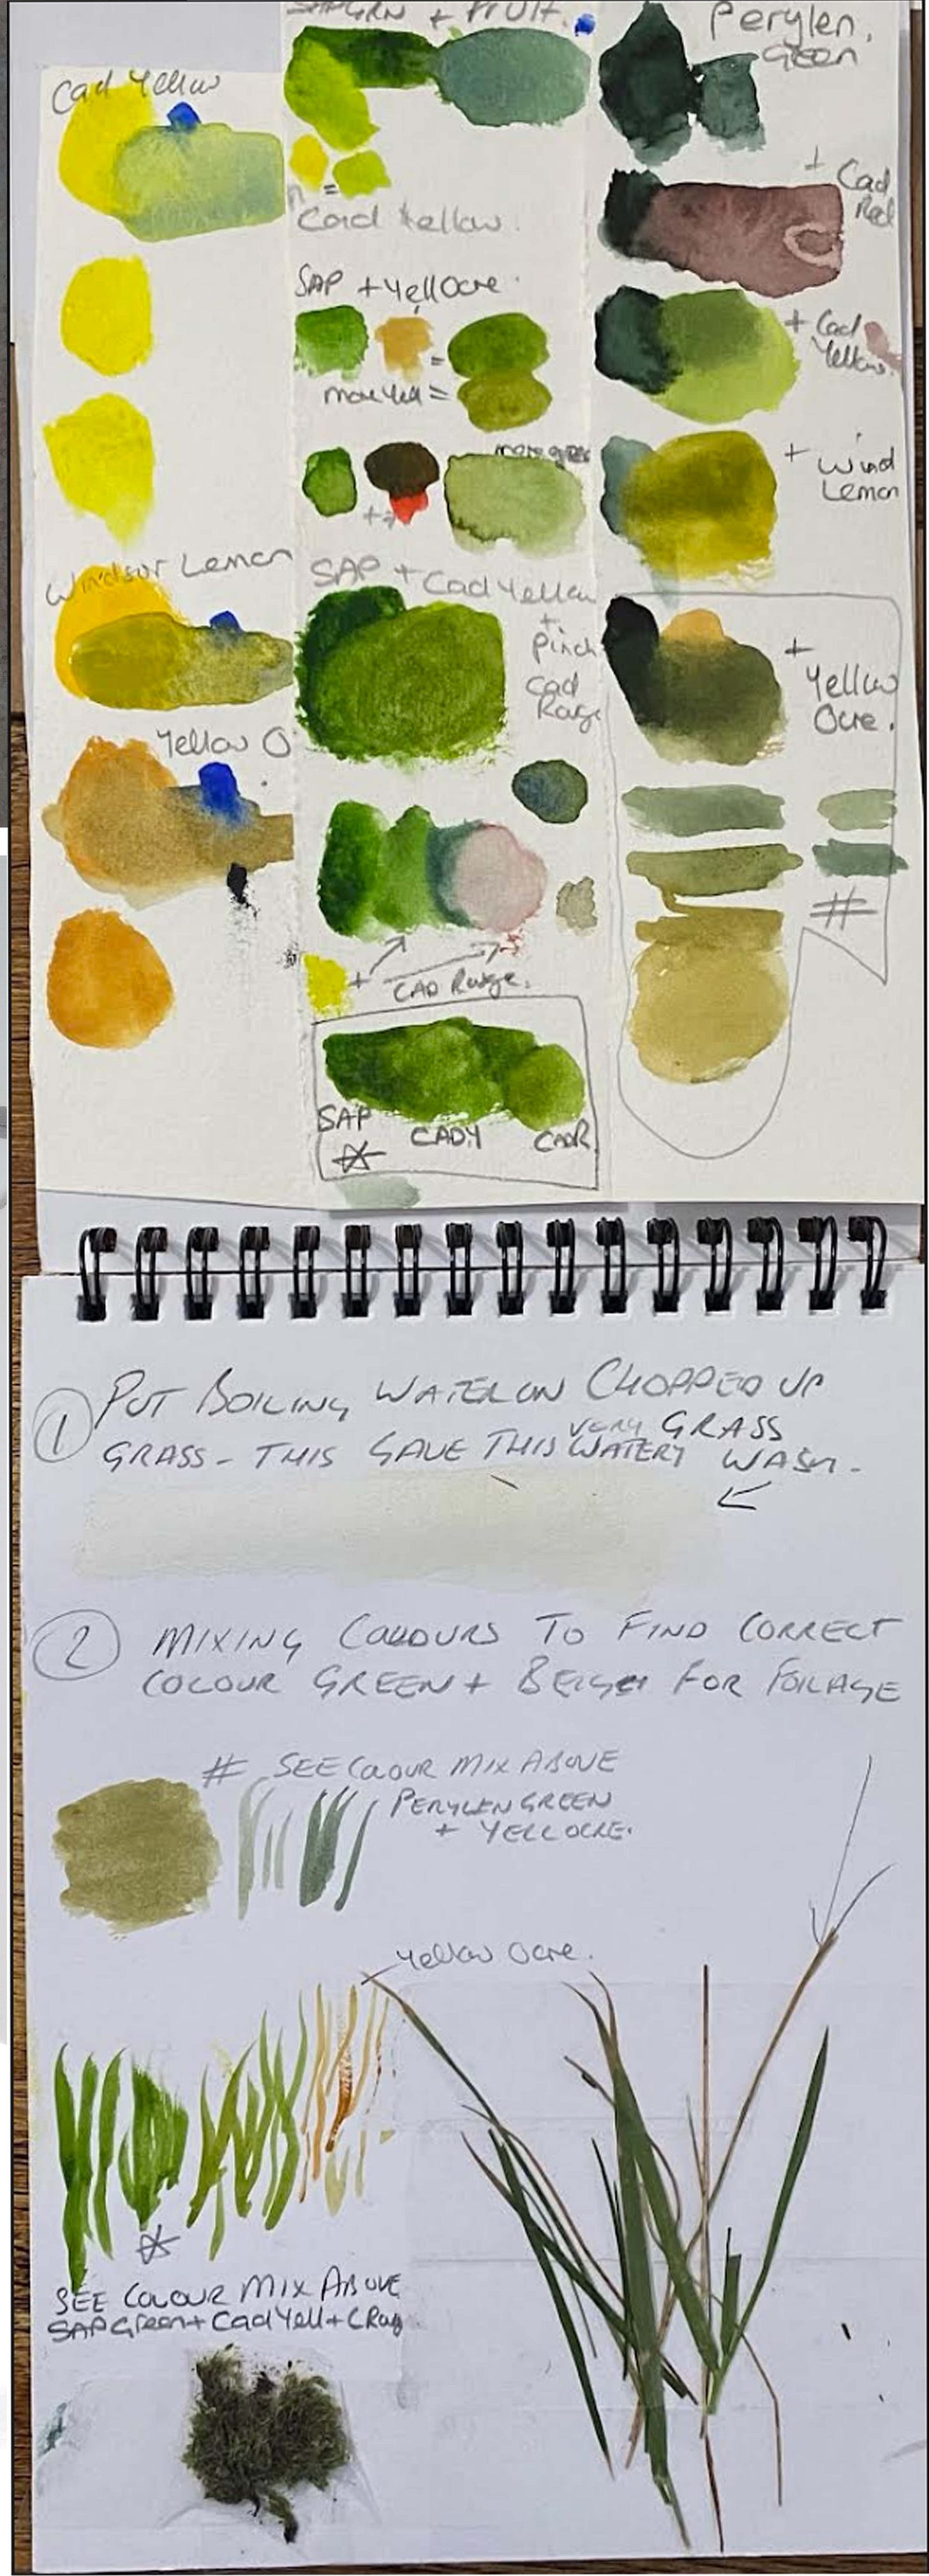 Cad Yellow
Windsor Lemon
Yellow O
SAPGRN + 
=
Cad Yellow.
SAP + Yell Ocre.
=
more Yell =
more green
SAP + Cad Yellow
+
Pinch
Cad
+
CAD Rouge.
SAP
CADY
CADR
Perylen.
Green
+ Cad
Red
+ Cad
Yellow.
+ Wind
Lemon
+
Yellow
Ocre.
#
① PUT BOILING WATER ON CHOPPED UP
GRASS - THIS GAVE THIS VERY WATERY GRASS WASH.
② MIXING COLOURS TO FIND CORRECT
COLOUR GREEN + BEIGE FOR FOILAGE
# SEE COLOUR MIX ABOVE
PERYLEN GREEN
+ YELL OCRE.
Yellow Ocre.
SEE COLOUR MIX ABOVE
SAP Green + Cad Yell + C Roug.